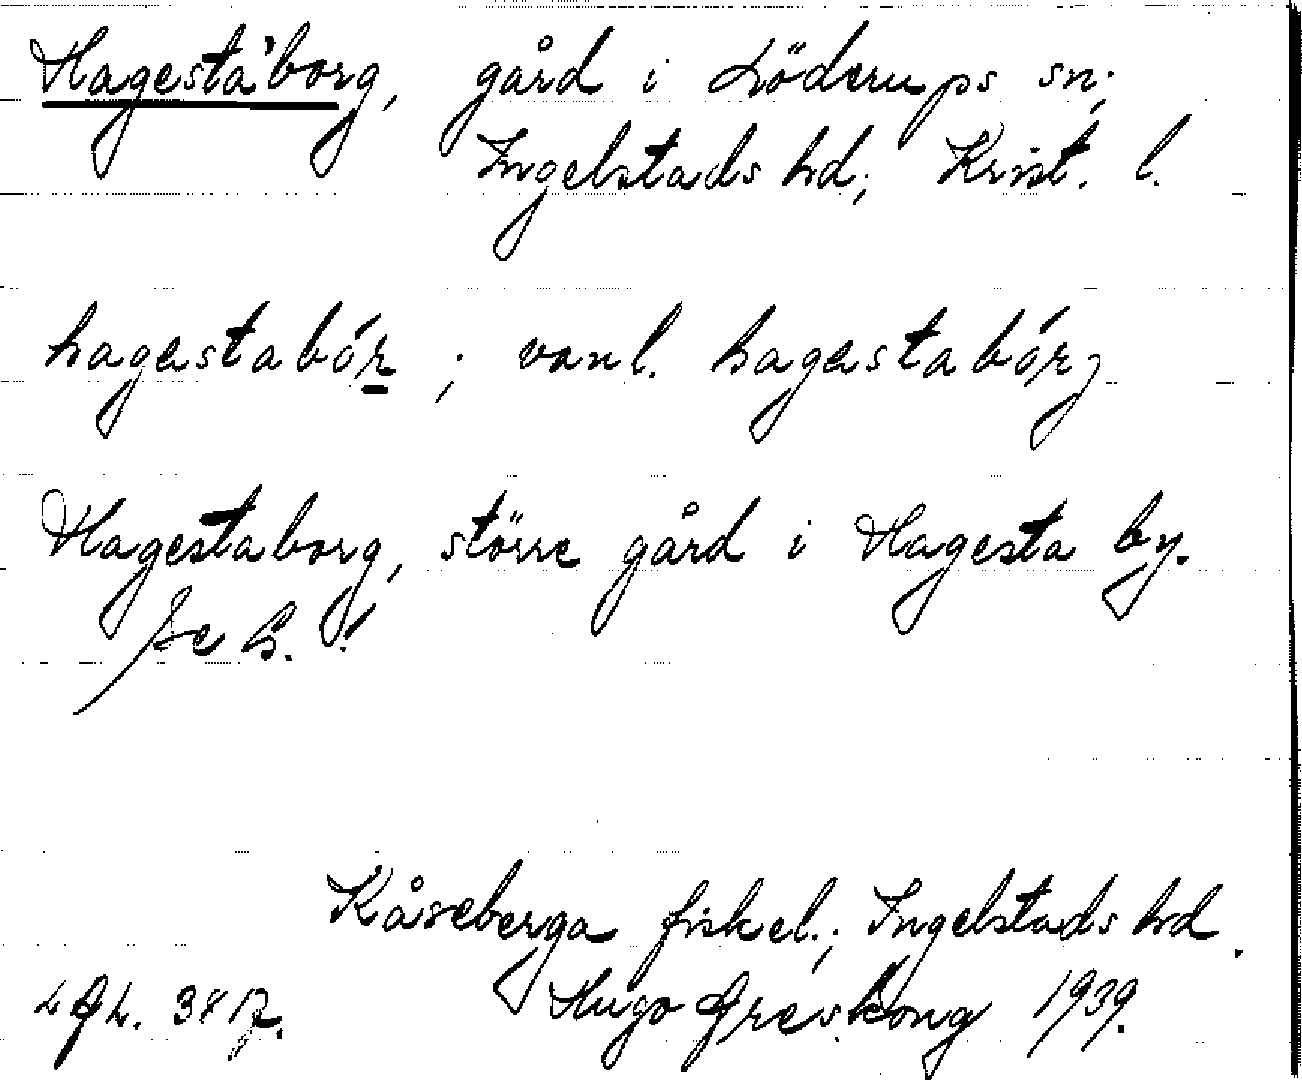 Hagestaborg, gård i Löderups sn;
Ingelstads hd; Krist. l.
hagestabór ; vanl. hagestabórg
Hagestaborg, större gård i Hagesta by.
Se H.!
Kåseberga fiskel.; Ingelstads hd.
Hugo Areskoug 1939.